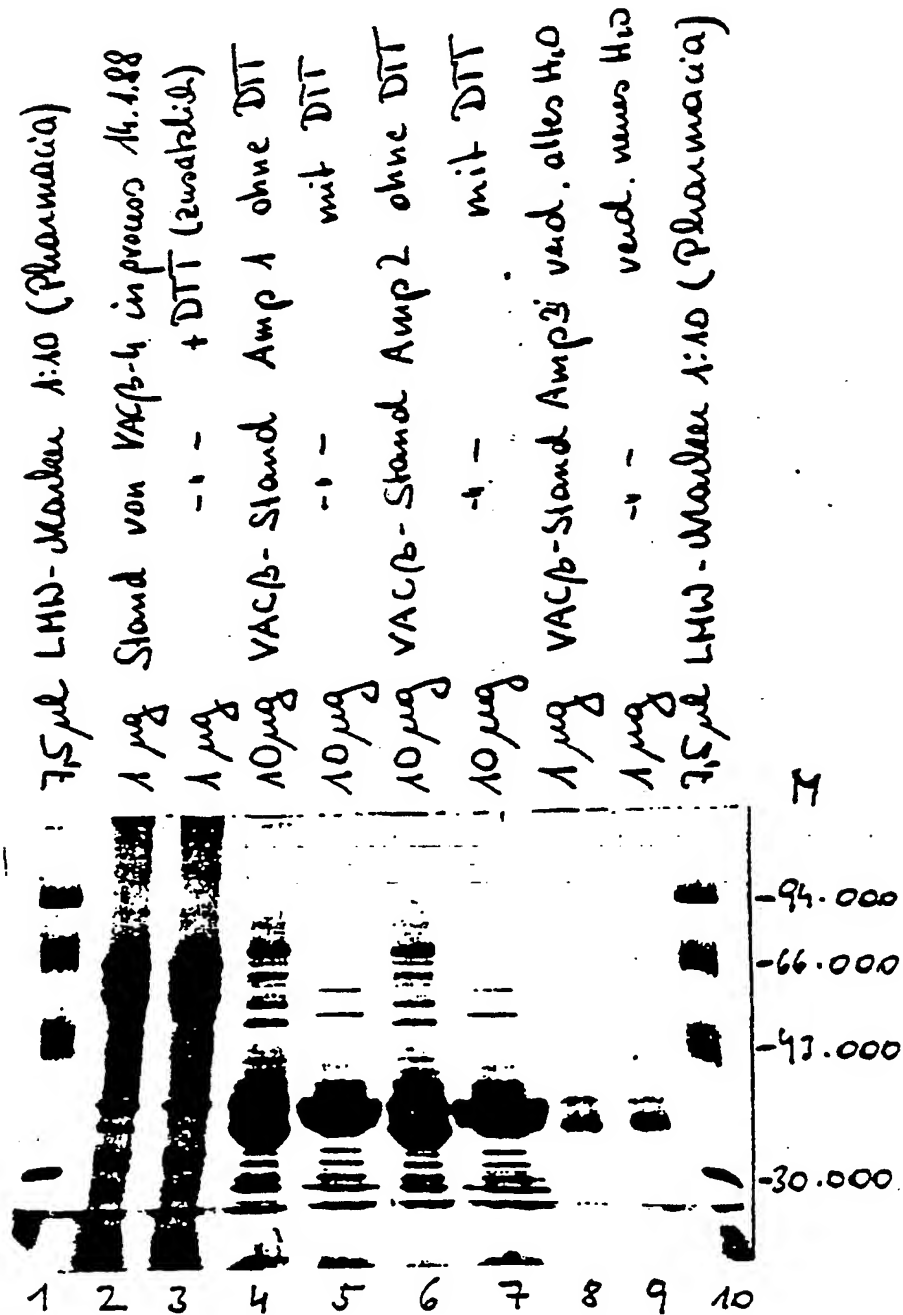 7,5 µl LMW-Marker 1:10 (Pharmacia)
1 µg Stand von VACβ-4 in process 14.1.88
1 µg -"- + DTT (zusätzlich)
10 µg VACβ-Stand Amp 1 ohne DTT
10 µg -"- mit DTT
10 µg VACβ-Stand Amp 2 ohne DTT
10 µg -"- mit DTT
1 µg VACβ-Stand Amp 3 verd. altes H2O
1 µg -"- verd. neues H2O
7,5 µl LMW-Marker 1:10 (Pharmacia)
M
-94.000
-66.000
-43.000
-30.000
1 2 3 4 5 6 7 8 9 10